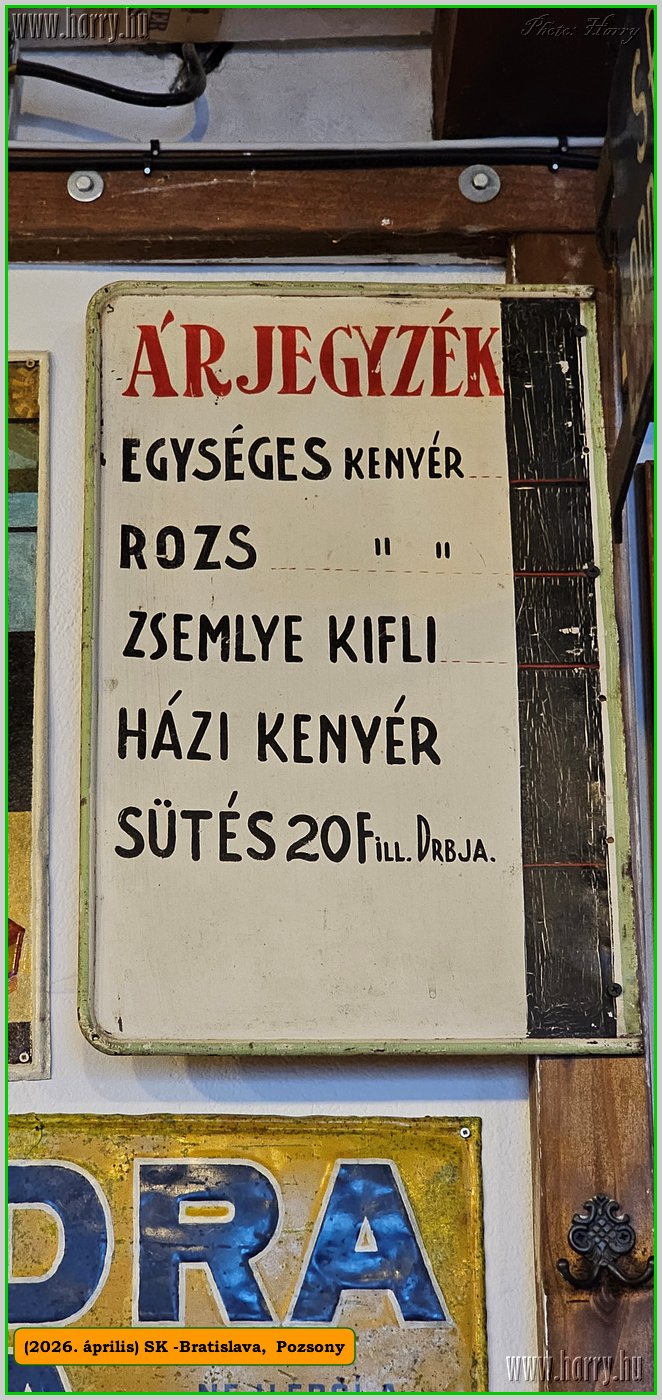 www.harry.hu
Photo: Harry
ÁRJEGYZÉK
EGYSÉGES KENYÉR
ROZS " "
ZSEMLYE KIFLI
HÁZI KENYÉR
SÜTÉS 20 Fill. DRBJA.
DRA
(2026. április) SK -Bratislava, Pozsony
www.harry.hu